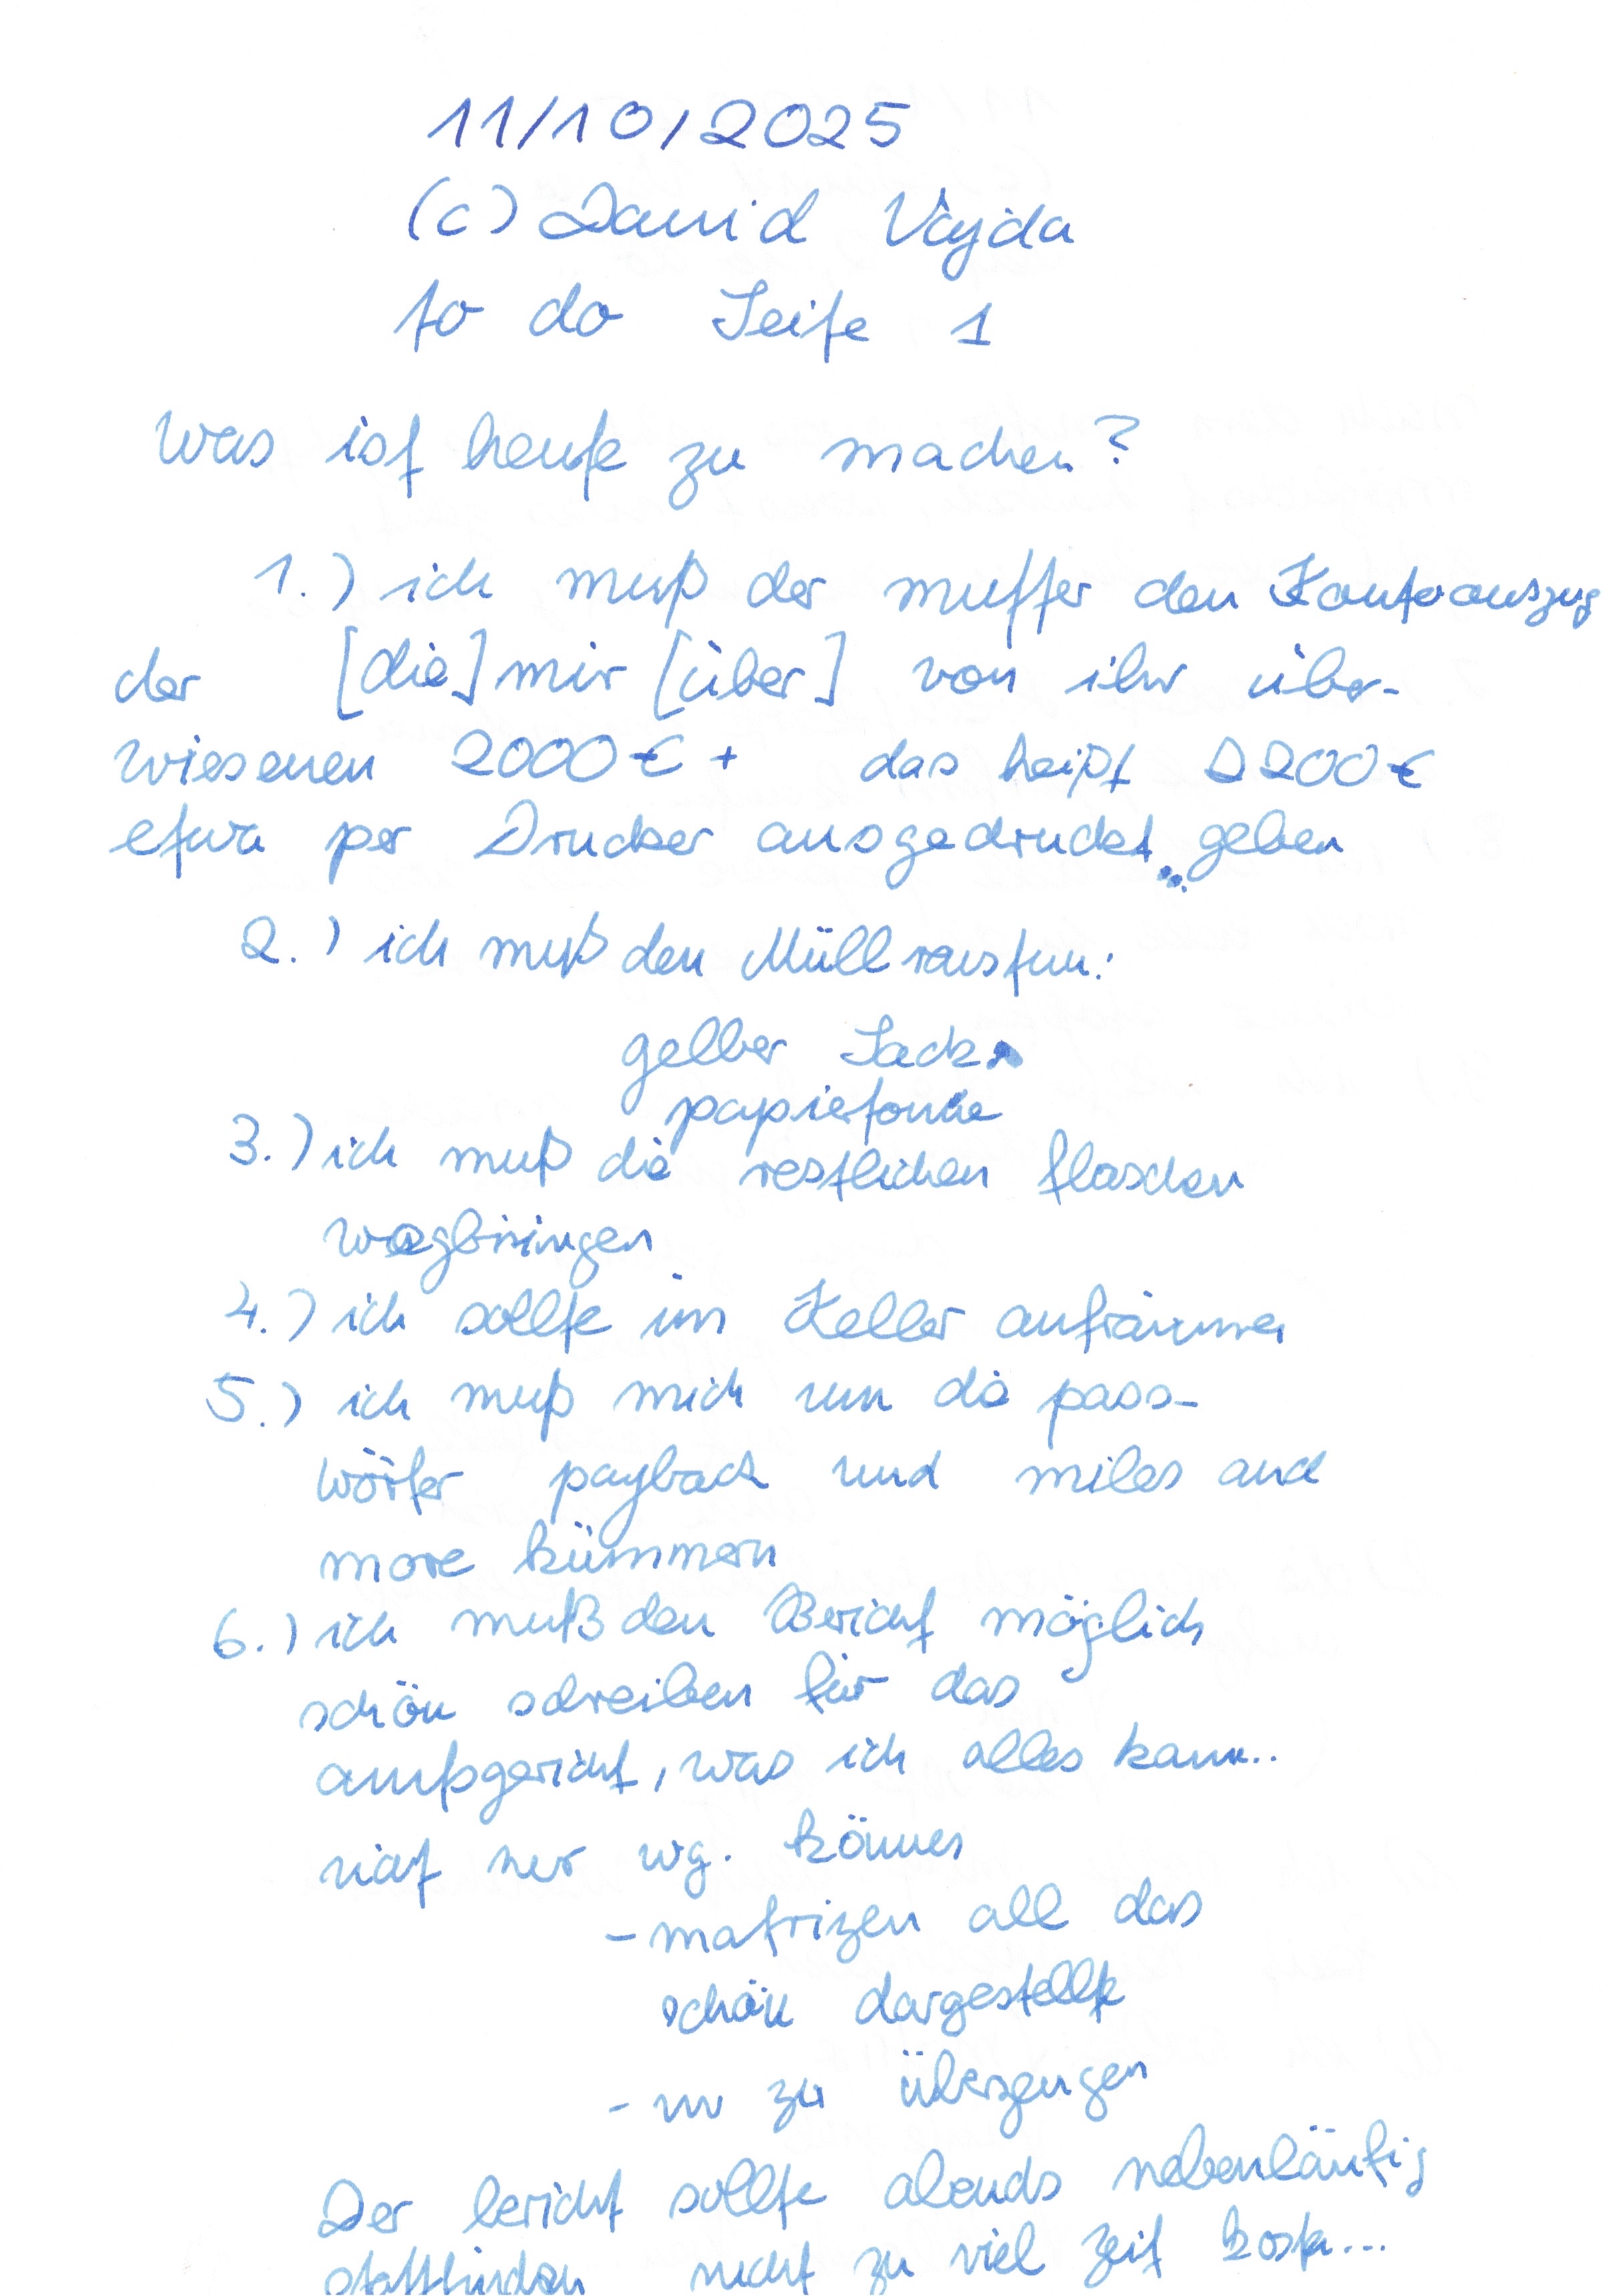 11/10/2025
(c) David Vajda
to do Seite 1
Was ist heute zu machen?
1.) ich muß der mutter den Kontoauszug
der [die] mir [über] von ihr über-
wiesenen 2000€ + das heißt 2200€
etwa per Drucker ausgedruckt geben
2.) ich muß den Müll raustun:
gelber Sack
papiertonne
3.) ich muß die restlichen flaschen
wegbringen
4.) ich sollte im Keller aufräumen
5.) ich muß mich um die pass-
wörter payback und miles and
more kümmern
6.) ich muß den Bericht möglich
schön schreiben für das
amtsgericht, was ich alles kann..
nicht nur wg. können
- matrizen all das
schön dargestellt
- um zu überzeugen
Der bericht sollte abends nebenläufig
stattfinden nicht zu viel zeit kosten...